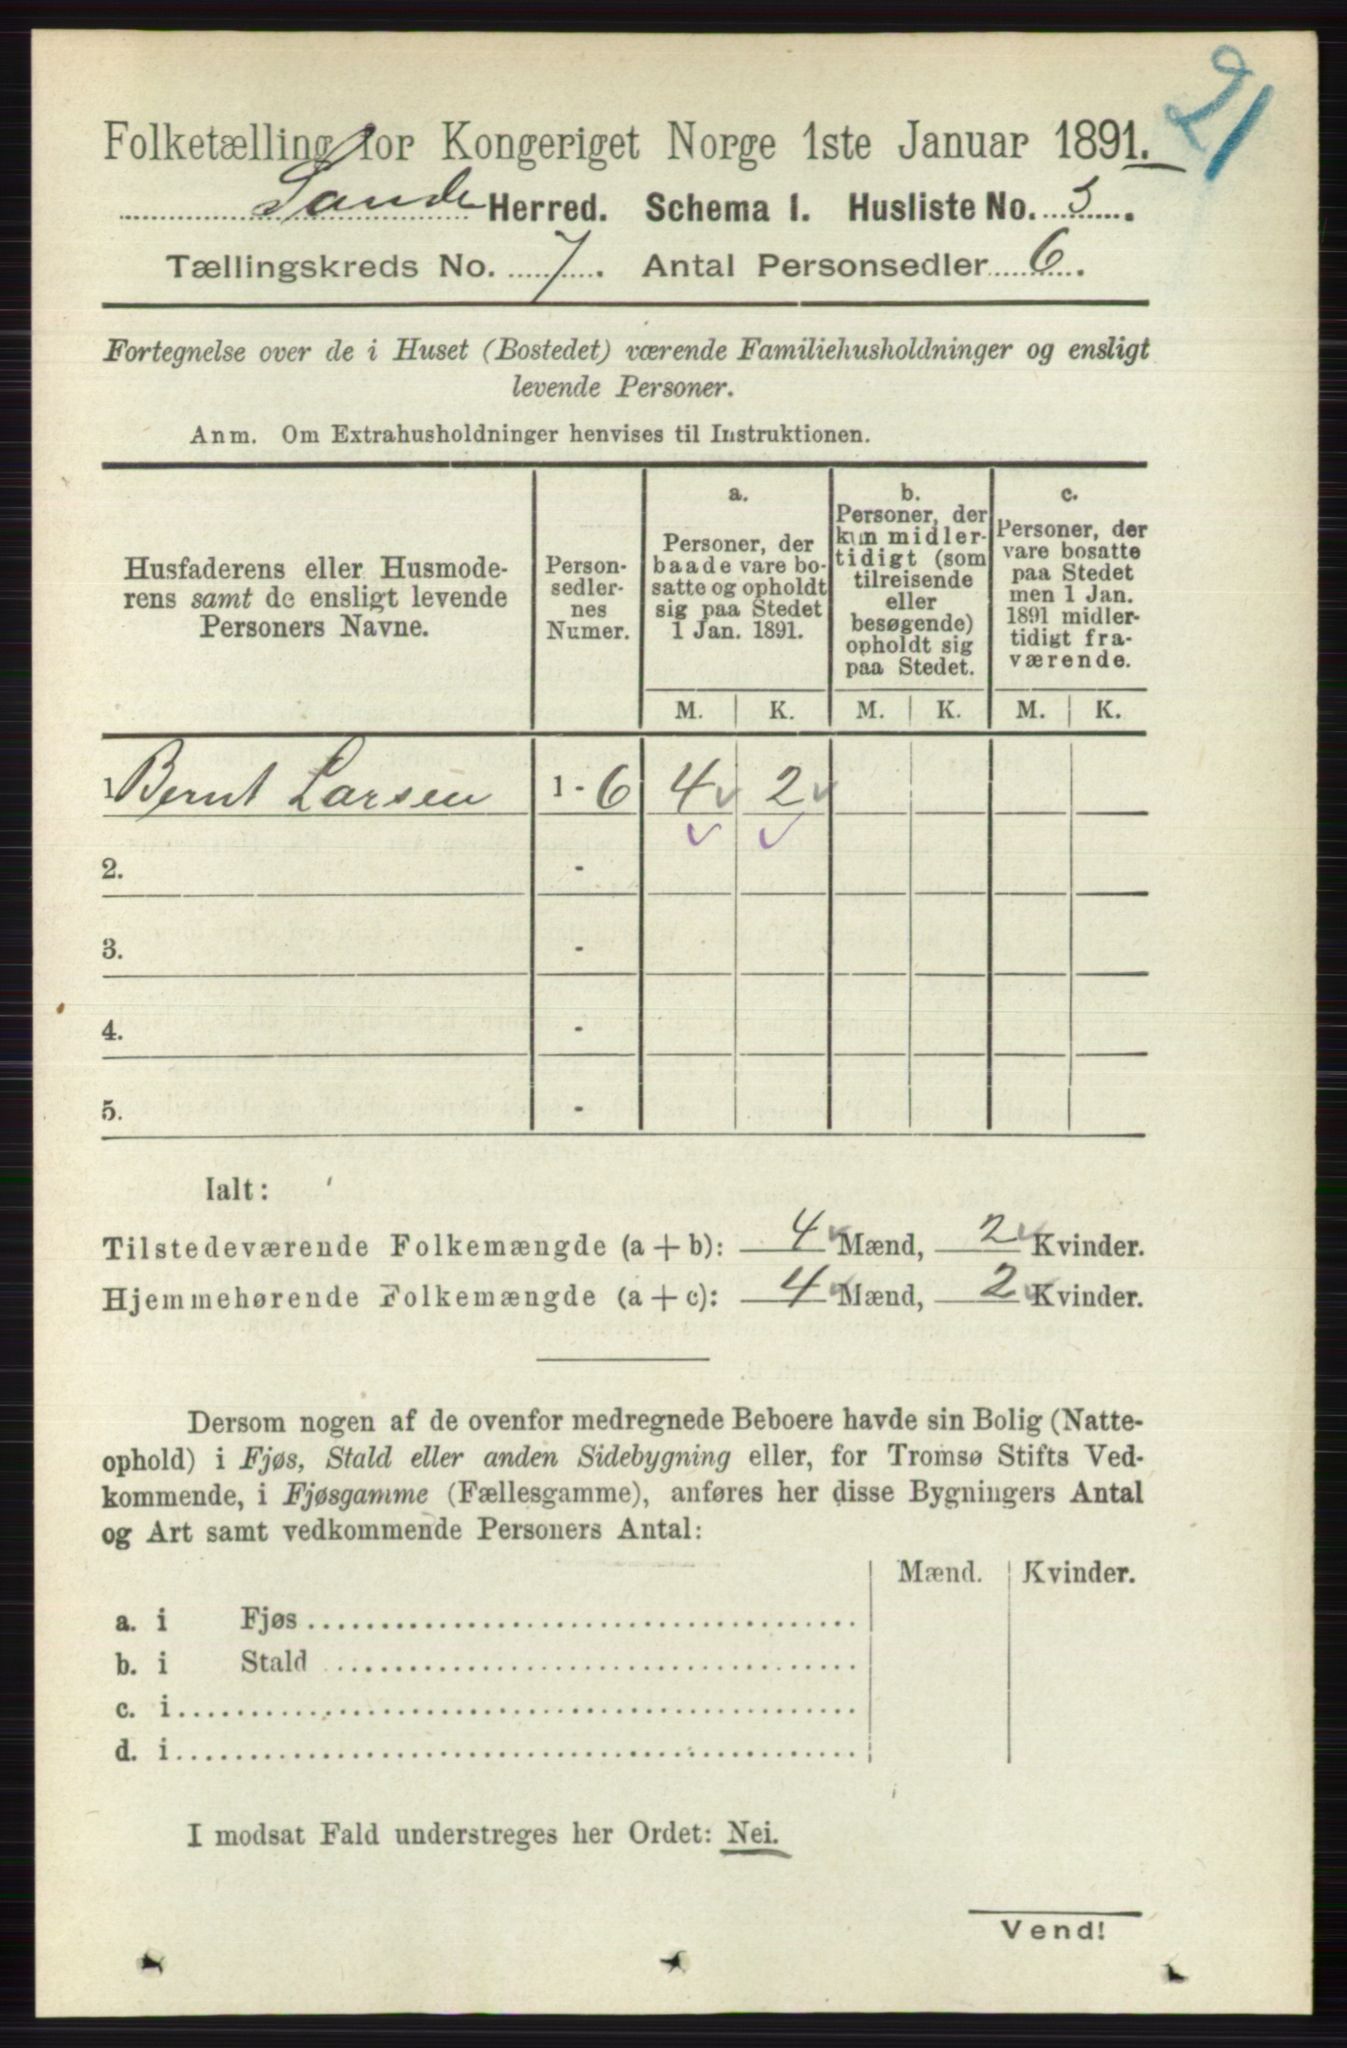 21
Folketælling for Kongeriget Norge 1ste Januar 1891.
Sande Herred. Schema 1. Husliste No. 3.
Tællingskreds No. 7. Antal Personsedler 6.
Fortegnelse over de i Huset (Bostedet) værende Familiehusholdninger og ensligt
levende Personer.
Anm. Om Extrahusholdninger henvises til Instruktionen.
Husfaderens eller Husmode-
rens samt de ensligt levende
Personers Navne.
Person-
sedler-
nes
Numer.
a.
Personer, der
baade vare bo-
satte og opholdt
sig paa Stedet
1 Jan. 1891.
b.
Personer, der
kun midler-
tidigt (som
tilreisende
eller
besøgende)
opholdt sig
paa Stedet.
c.
Personer, der
vare bosatte
paa Stedet
men 1 Jan.
1891 midler-
tidigt fra-
værende.
M. K. M. K. M. K.
1. Bernt Larsen 1 - 6 4 2
2. -
3. -
4. -
5. -
Ialt:
Tilstedeværende Folkemængde (a + b): 4 Mænd, 2 Kvinder.
Hjemmehørende Folkemængde (a + c): 4 Mænd, 2 Kvinder.
Dersom nogen af de ovenfor medregnede Beboere havde sin Bolig (Natte-
ophold) i Fjøs, Stald eller anden Sidebygning eller, for Tromsø Stifts Ved-
kommende, i Fjøsgamme (Fællesgamme), anføres her disse Bygningers Antal
og Art samt vedkommende Personers Antal:
Mænd. Kvinder.
a. i Fjøs
b. i Stald
c. i
d. i
I modsat Fald understreges her Ordet: Nei.
Vend!